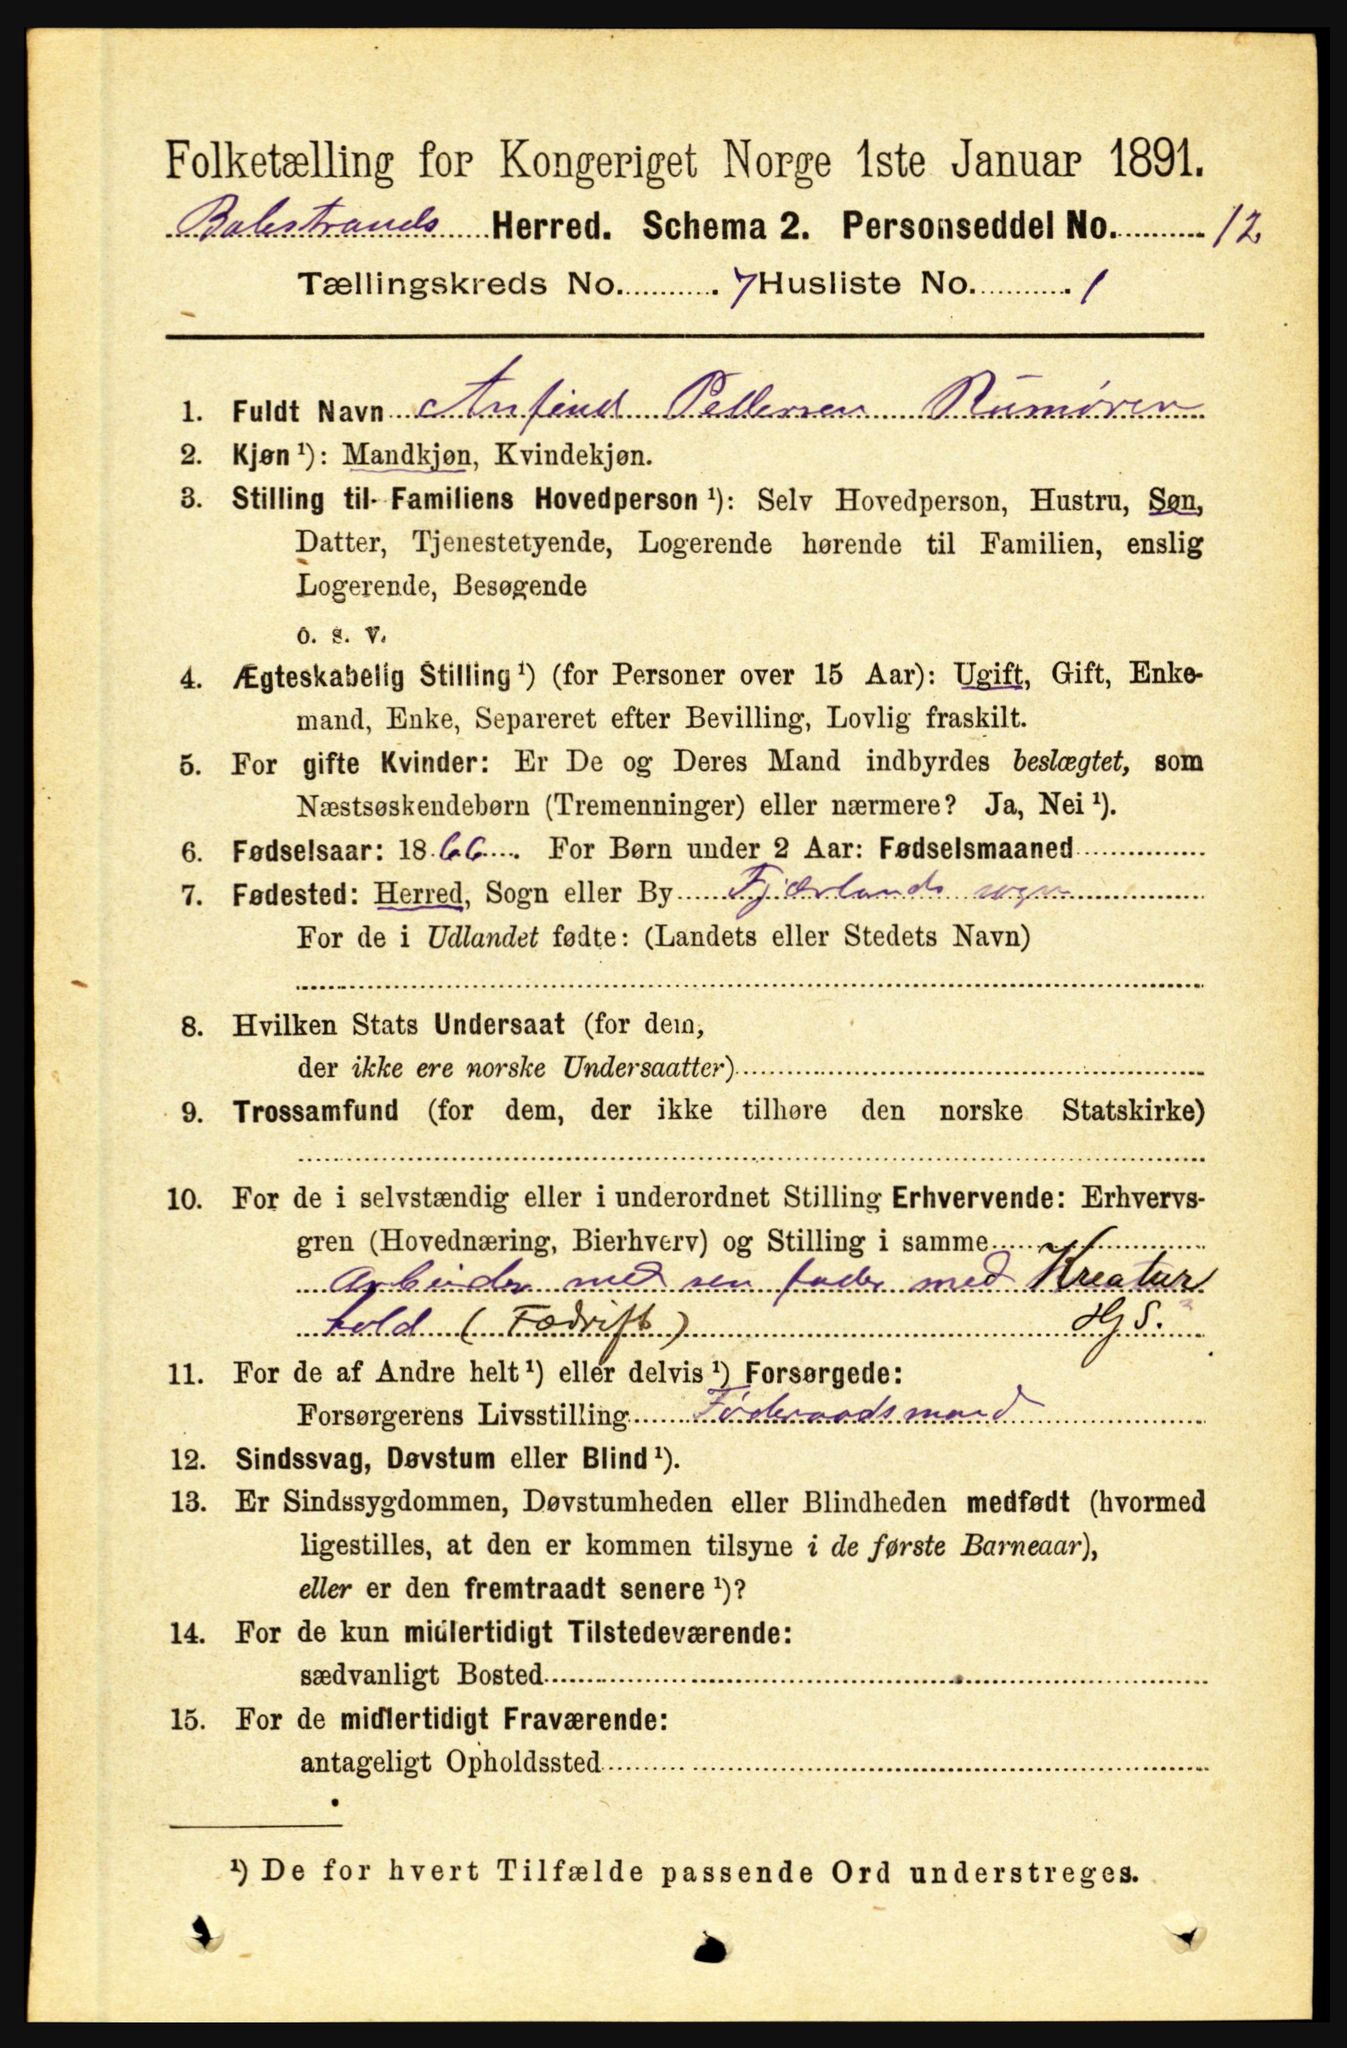 Folketælling for Kongeriget Norge 1ste Januar 1891.
Balestrands Herred. Schema 2. Personseddel No. 12
Tællingskreds No. 7 Husliste No. 1
1. Fuldt Navn Anfind Pedersen Rumøren
2. Kjøn ¹): Mandkjøn, Kvindekjøn.
3. Stilling til Familiens Hovedperson ¹): Selv Hovedperson, Hustru, Søn,
Datter, Tjenestetyende, Logerende hørende til Familien, enslig
Logerende, Besøgende
o. s. v.
4. Ægteskabelig Stilling ¹) (for Personer over 15 Aar): Ugift, Gift, Enke-
mand, Enke, Separeret efter Bevilling, Lovlig fraskilt.
5. For gifte Kvinder: Er De og Deres Mand indbyrdes beslægtet, som
Næstsøskendebørn (Tremenninger) eller nærmere? Ja, Nei ¹).
6. Fødselsaar: 1866. For Børn under 2 Aar: Fødselsmaaned
7. Fødested: Herred, Sogn eller By Fjærlands sogn
For de i Udlandet fødte: (Landets eller Stedets Navn)
8. Hvilken Stats Undersaat (for dem,
der ikke ere norske Undersaatter)
9. Trossamfund (for dem, der ikke tilhøre den norske Statskirke)
10. For de i selvstændig eller i underordnet Stilling Erhvervende: Erhvervs-
gren (Hovednæring, Bierhverv) og Stilling i samme
Arbeider med sen fader med Kreatur
hold (Fædrift) HjS.
11. For de af Andre helt ¹) eller delvis ¹) Forsørgede:
Forsørgerens Livsstilling Föderaadsmand
12. Sindssvag, Døvstum eller Blind ¹).
13. Er Sindssygdommen, Døvstumheden eller Blindheden medfødt (hvormed
ligestilles, at den er kommen tilsyne i de første Barneaar),
eller er den fremtraadt senere ¹)?
14. For de kun midlertidigt Tilstedeværende:
sædvanligt Bosted
15. For de midlertidigt Fraværende:
antageligt Opholdssted
¹) De for hvert Tilfælde passende Ord understreges.